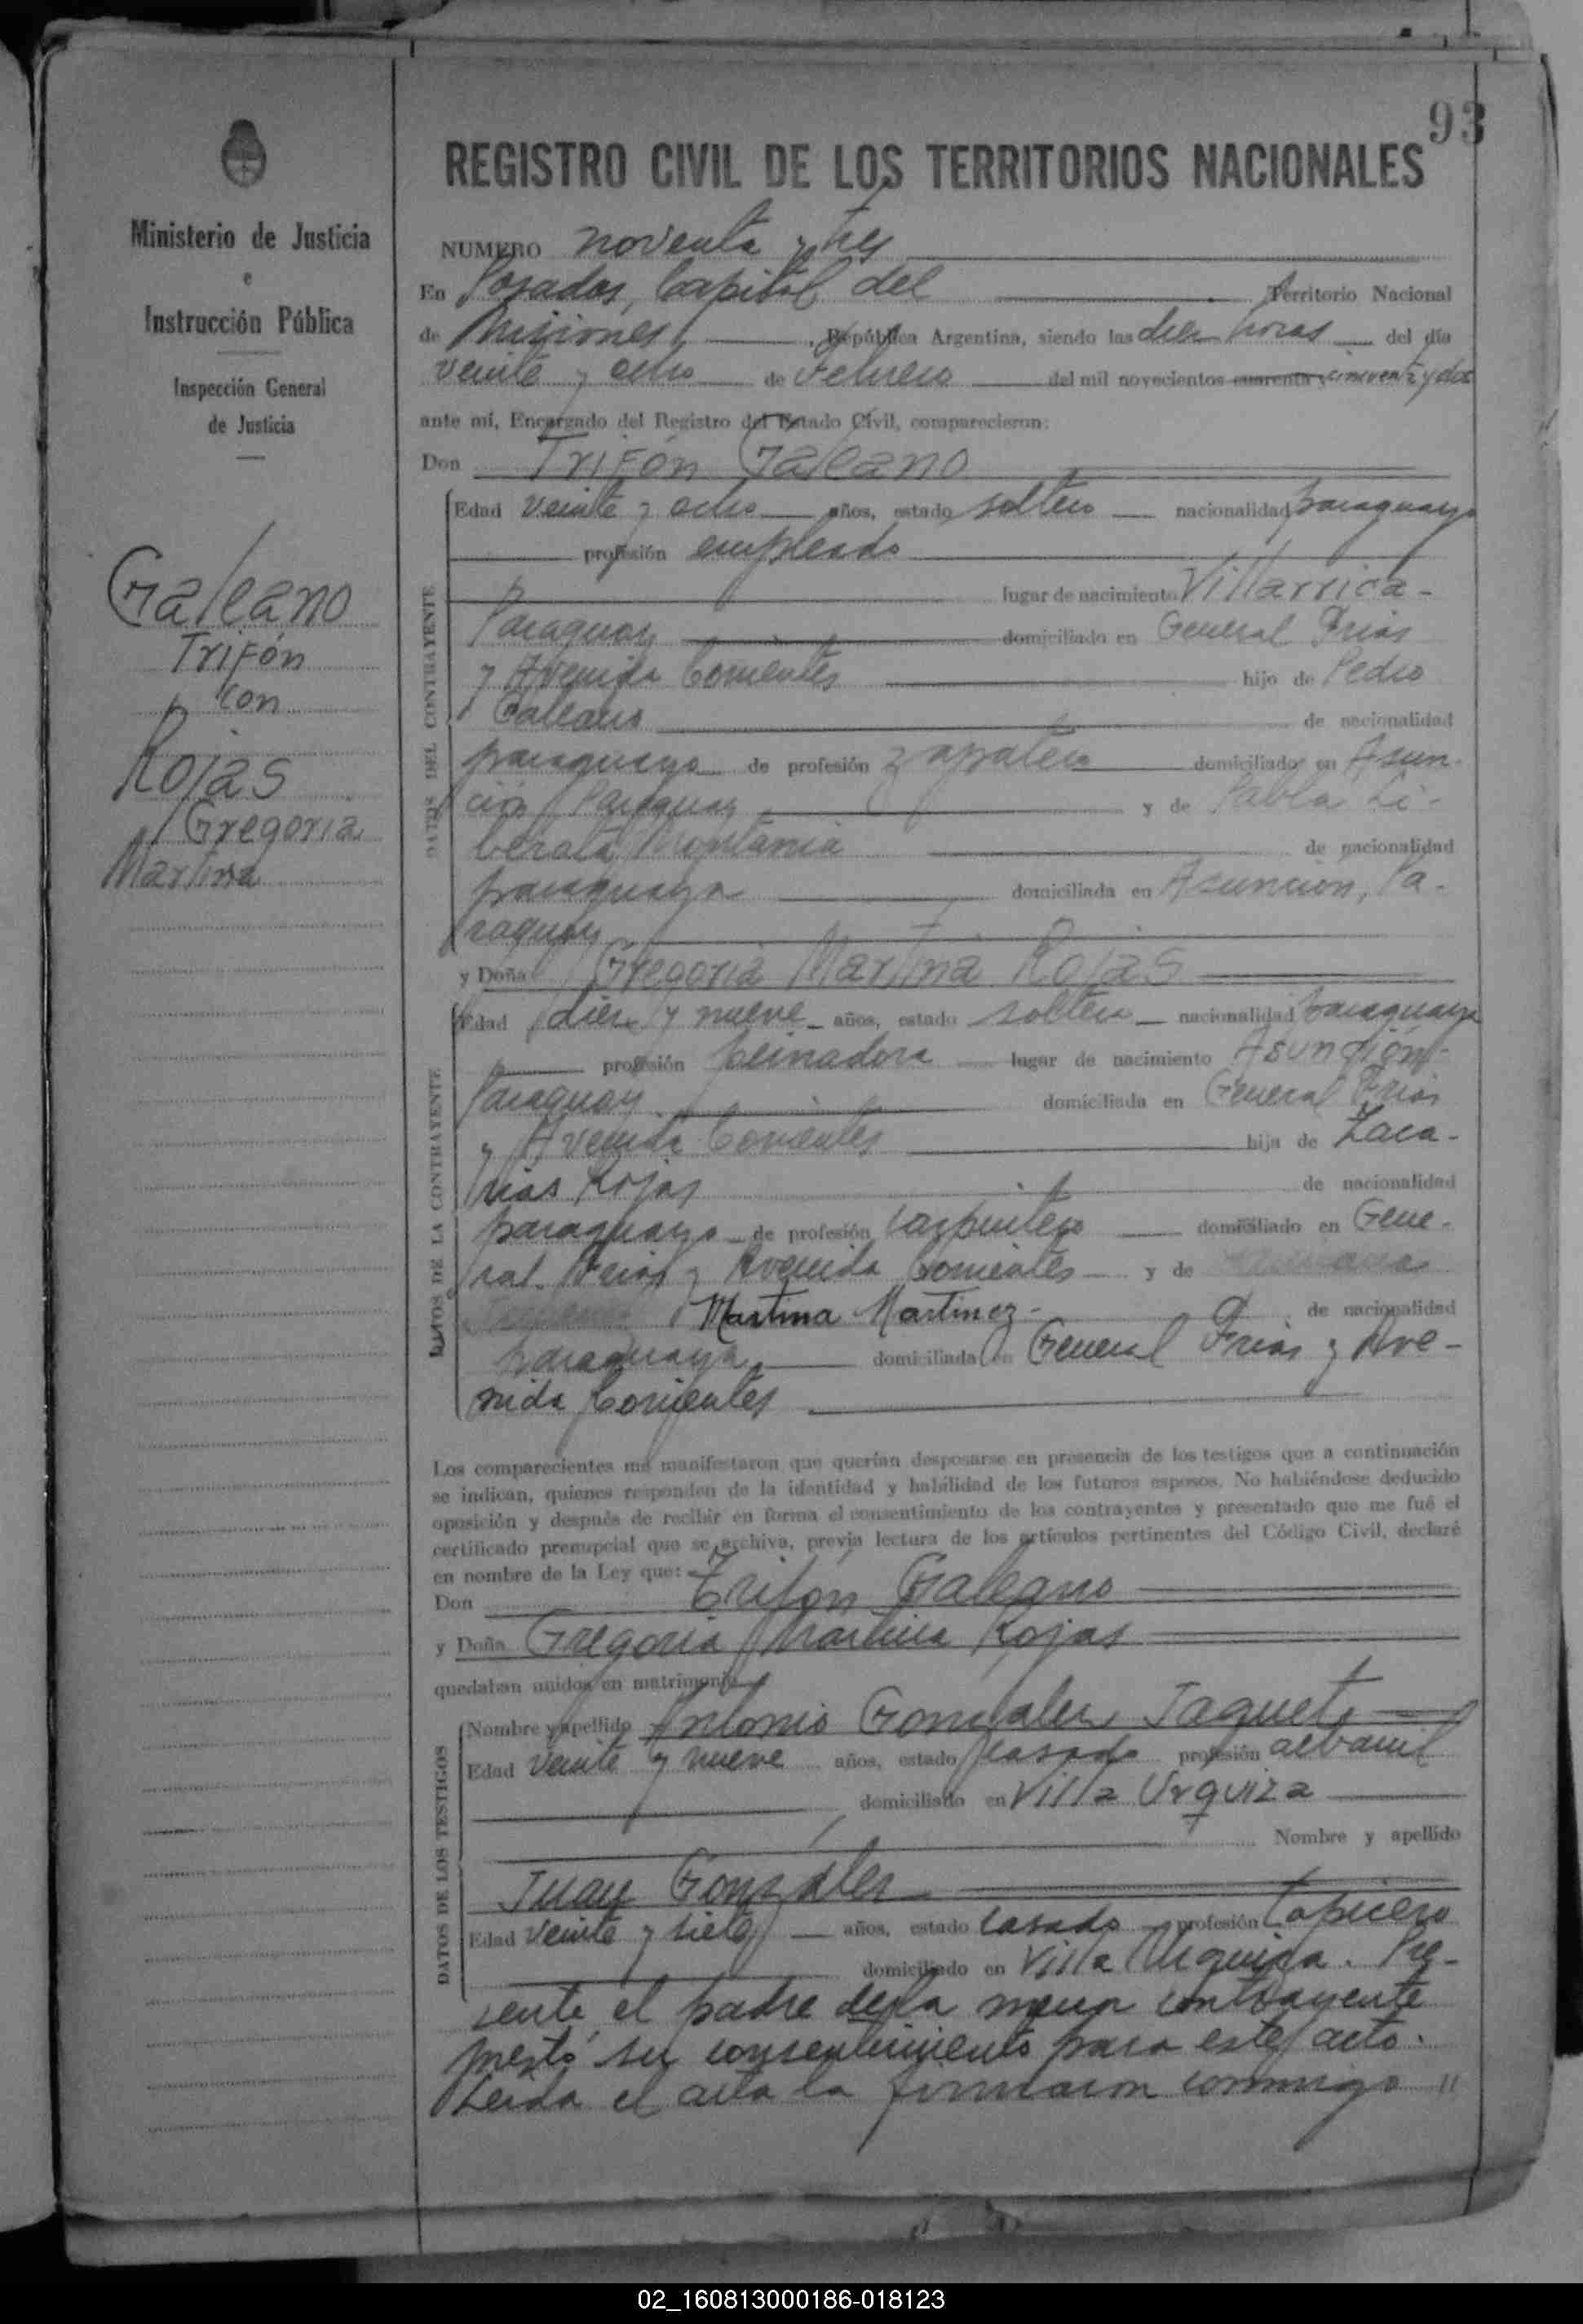 93
Ministerio de Justicia
e
Instrucción Pública
Inspección General
de Justicia
Galeano
Trifón
con
Rojas
Gregoria
Martina
REGISTRO CIVIL DE LOS TERRITORIOS NACIONALES
NUMERO noventa y tres
En Posadas, Capital del Territorio Nacional
de Misiones, República Argentina, siendo las diez horas del día
veinte y ocho de Febrero del mil novecientos cuarenta y cincuenta y dos
ante mí, Encargado del Registro del Estado Civil, comparecieron:
Don Trifón Galeano
DATOS DEL CONTRAYENTE
Edad veinte y ocho años, estado soltero nacionalidad paraguayo
profesión empleado
lugar de nacimiento Villarrica-
Paraguay domiciliado en General Frias
y Avenida Corrientes hijo de Pedro
Galeano de nacionalidad
paraguaya de profesión zapatero domiciliado en Asun-
ción, Paraguay y de Pabla Li-
berata Montania de nacionalidad
paraguaya domiciliada en Asunción, Pa-
raguay
y Doña Gregoria Martina Rojas
DATOS DE LA CONTRAYENTE
Edad diez y nueve años, estado soltera nacionalidad paraguaya
profesión peinadora lugar de nacimiento Asunción-
Paraguay domiciliada en General Frias
y Avenida Corrientes hija de Zaca-
rias Rojas de nacionalidad
paraguayo de profesión carpintero domiciliado en Gene-
ral Frias y Avenida Corrientes y de
Martina Martinez- de nacionalidad
paraguaya domiciliada en General Frias y Ave-
nida Corrientes
Los comparecientes me manifestaron que querían desposarse en presencia de los testigos que a continuación
se indican, quienes responden de la identidad y habilidad de los futuros esposos. No habiéndose deducido
oposición y después de recibir en forma el consentimiento de los contrayentes y presentado que me fué el
certificado prenupcial que se archiva, previa lectura de los artículos pertinentes del Código Civil, declaré
en nombre de la Ley que:
Don Trifón Galeano
y Doña Gregoria Martina Rojas
quedaban unidos en matrimonio
DATOS DE LOS TESTIGOS
Nombre y apellido Antonio Gonzalez Jaquet
Edad veinte y nueve años, estado casado profesión albanil
domiciliado en Villa Urquiza
Nombre y apellido
Juan Gonzáles
Edad veinte y siete años, estado casado profesión tapicero
domiciliado en Villa Urquiza. Pre-
sente el padre de la menor contrayente
prestó su consentimiento para este acto.
Leida el acta la firmaron conmigo "
02_160813000186-018123